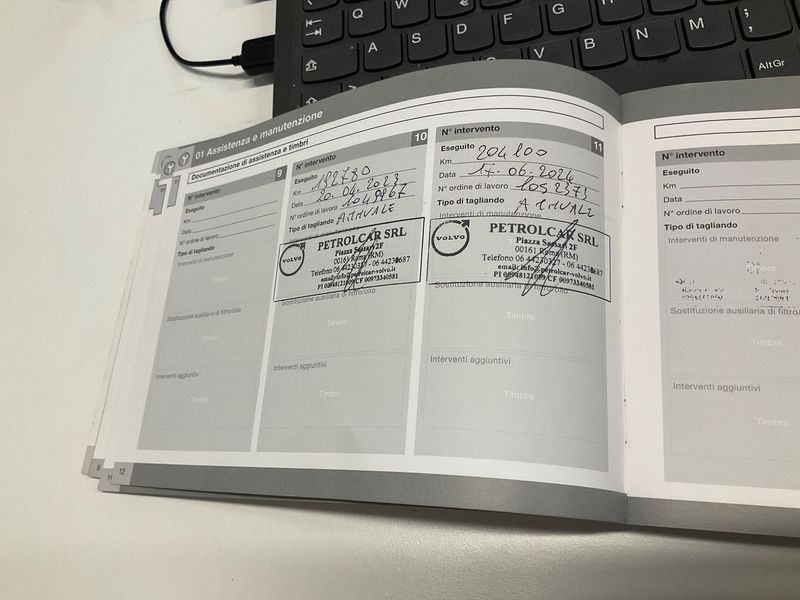 01 Assistenza e manutenzione
Documentazione di assistenza e timbri
9
N° intervento
Eseguito
Km
Data
N° ordine di lavoro
Tipo di tagliando
Interventi di manutenzione
Sostituzione ausiliaria di filtro/olio
Timbro
Interventi aggiuntivi
Timbro
10
N° intervento
Eseguito
Km 192780
Data 20-04-2023
N° ordine di lavoro 1049967
Tipo di tagliando ANNUALE
Interventi di manutenzione
VOLVO
PETROLCAR SRL
Piazza Sassari 2F
00161 Roma (RM)
Telefono 06 44230327 - 06 44230687
email: info@petrolcar-volvo.it
PI 00948121009 CF 00973340581
Sostituzione ausiliaria di filtro/olio
Timbro
Interventi aggiuntivi
Timbro
11
N° intervento
Eseguito
Km 204100
Data 17-06-2024
N° ordine di lavoro 1052375
Tipo di tagliando ANNUALE
Interventi di manutenzione
VOLVO
PETROLCAR SRL
Piazza Sassari 2F
00161 Roma (RM)
Telefono 06 44230327 - 06 44230687
email: info@petrolcar-volvo.it
PI 00948121009 CF 00973340581
Sostituzione ausiliaria di filtro/olio
Timbro
Interventi aggiuntivi
Timbro
N° intervento
Eseguito
Km
Data
N° ordine di lavoro
Tipo di tagliando
Interventi di manutenzione
Timbro
Sostituzione ausiliaria di filtro/
Timbro
Interventi aggiuntivi
Timbro
8
11
12
Q W €
A S D F G H
V B N M ;
AltGr